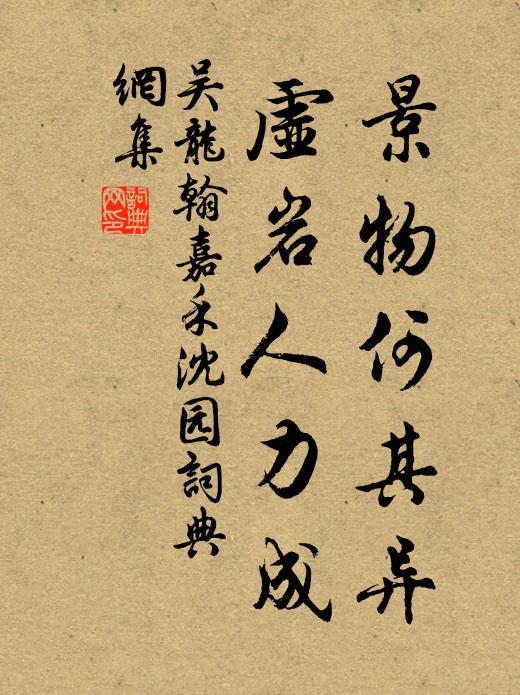 景物何其异
虚岩人力成
吴龍翰嘉禾沈园詞典
網集
詞典
网印